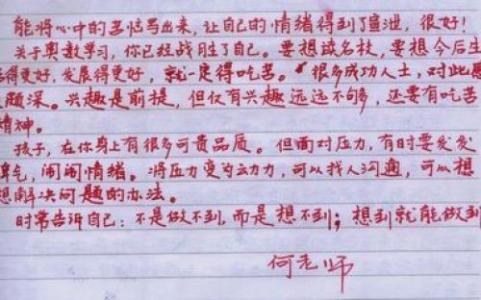 能将心中的苦恼写出来,让自己的情绪得到了宣泄,很好!
关于奥数学习,你已经战胜了自己。要想读名校,要想今后生
得更好,发展得更好,就一定得吃苦。很多成功人士,对此感
颇深。兴趣是前提,但仅有兴趣远远不够,还要有吃苦
精神。
孩子,在你身上有很多可贵品质。但面对压力,有时要发发
脾气,闹闹情绪。将压力变为动力,可以找人沟通,可以想
想解决问题的办法。
时常告诉自己:不是做不到,而是想不到;想到就能做到
何老师